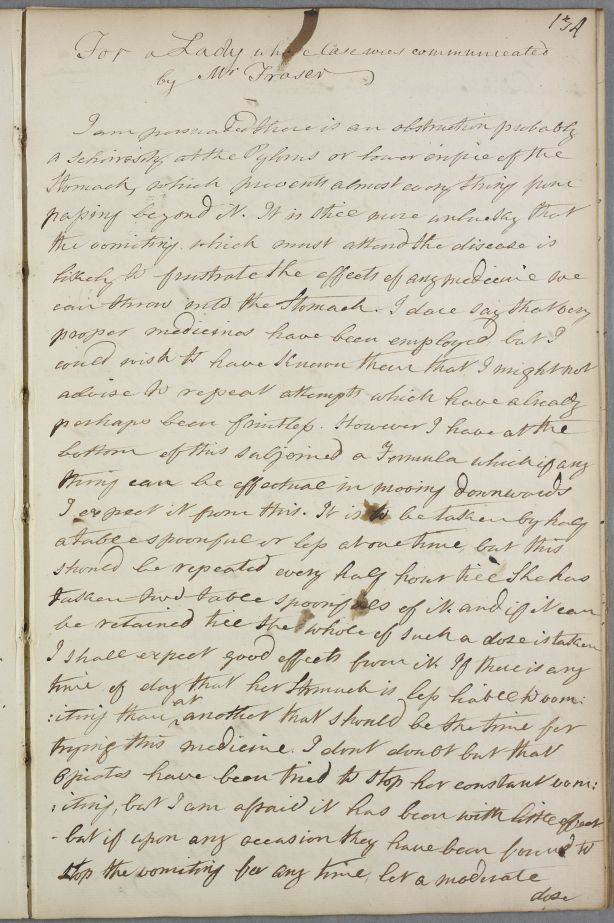 134
For a Lady whose Case was communicated
by Mr Fraser
I am persuaded there is an obstruction probably
a schirrosity at the Pylorus or lower orifice of the
Stomach, which prevents almost every thing from
passing beyond it. It is still more unlucky that
the vomiting which must attend the disease is
likely to frustrate the effects of any medicine we
can throw into the Stomach. I dare say that very
proper medicines have been employed but I
could wish to have known them that I might not
advise to repeat attempts which have already
perhaps been fruitless. However I have at the
bottom of this subjoined a Formula which if any
thing can be effectual in moving downwards
I expect it from this. It is to be taken by half
a table spoonful or less at one time, but this
should be repeated every half hour till She has
taken two table spoonfuls of it and if it can
be retained till the whole of such a dose is taken
I shall expect good effects from it. If there is any
time of day that her Stomach is less liable to vom:
:iting than at another that should be the time for
trying this medicine. I dont doubt but that
Opiates have been tried to stop her constant vom:
:iting, but I am afraid it has been with little effect
- but if upon any occasion they have been found to
stop the vomiting for any time, let a moderate
dose